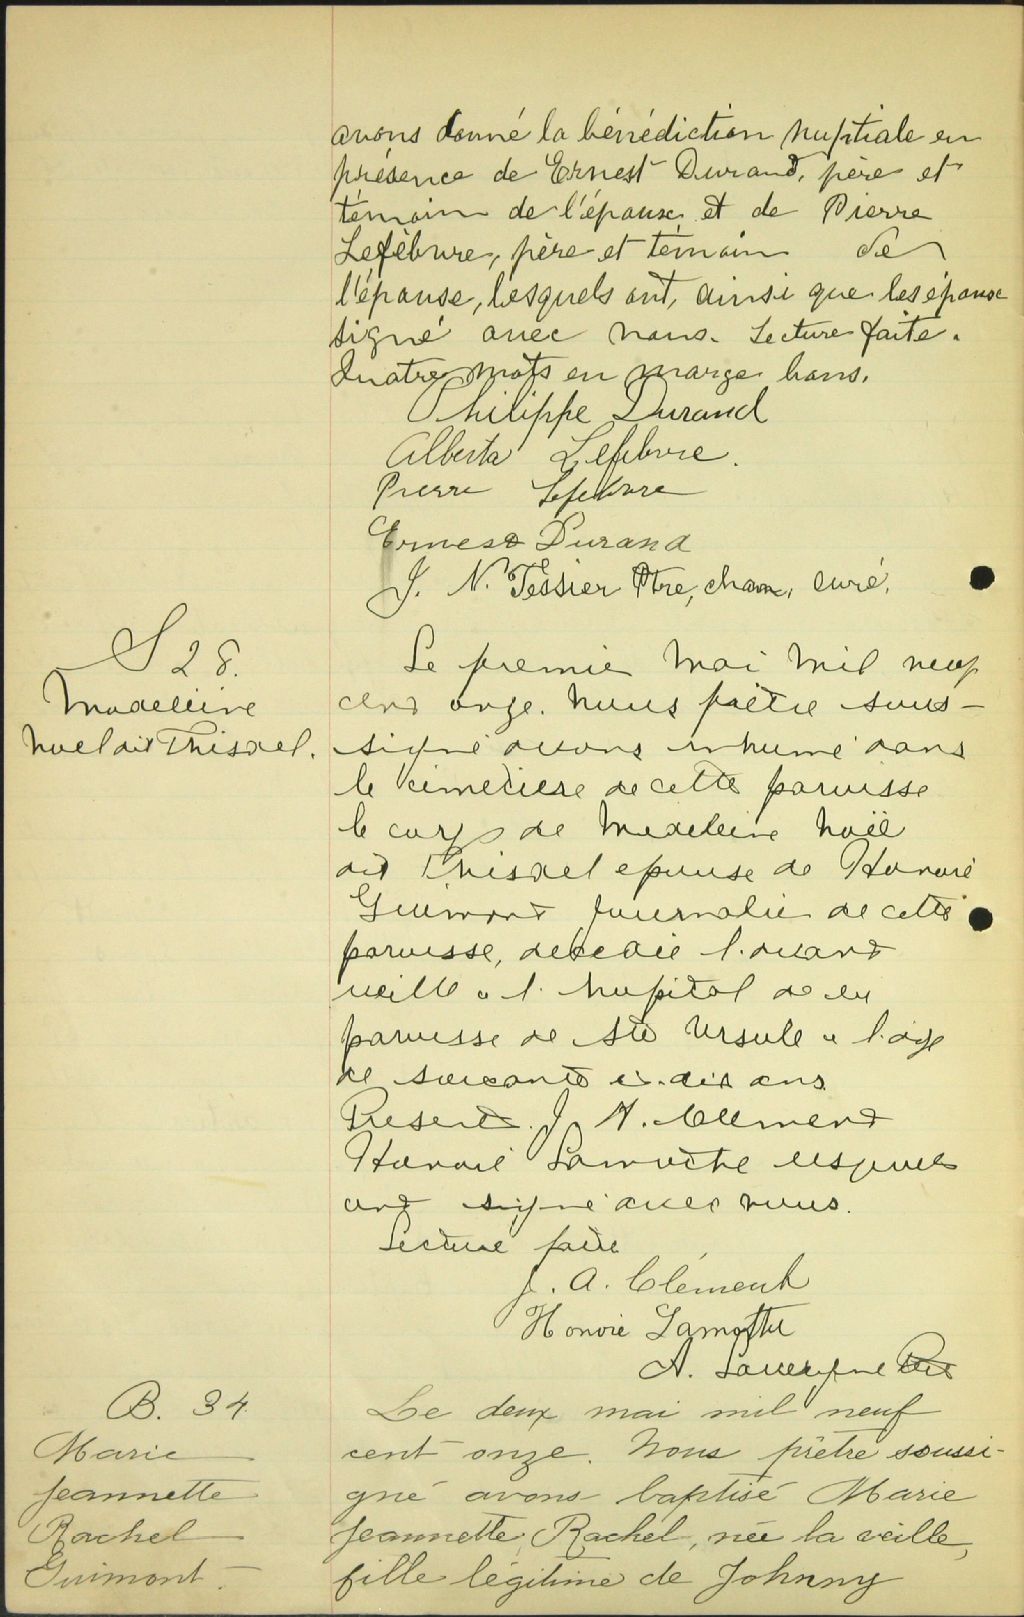 avons donné la bénédiction nuptiale en
présence de Ernest Durand, père et
témoin de l'époux et de Pierre
Lefebvre, père et témoin de
l'épouse, lesquels ont, ainsi que les époux
signé avec nous. Lecture faite.
Quatre mots en marge bons.
Philippe Durand
Alberta Lefebvre.
Pierre Lefebvre
Ernest Durand
J. N. Tessier Ptre, chan, curé.
S 28.
Madeleine
Noel dit Thisdel.
Le premier mai mil neuf
cent onze. Nous prêtre sous-
signé avons inhumé dans
le cimetière de cette paroisse
le corps de Madeleine Noël
dit Thisdel epouse de Honoré
Guimont journalier de cette
paroisse, décédée l'avant
veille a l'hopital de la
paroisse de Ste Ursule a l'age
de soixante et dix ans
Present J A. Clement
Honoré Lamothe lesquels
ont signé avec nous.
Lecture faite
J. A. Clément
Honoré Lamothe
A. Lavergne Ptre
B. 34
Marie
Jeannette
Rachel
Guimont.
Le deux mai mil neuf
cent onze. Nous prêtre soussi-
gné avons baptisé Marie
Jeannette, Rachel, née la veille,
fille légitime de Johnny